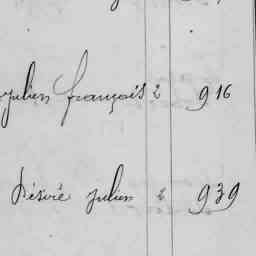 Julien françois 2 916
Désiré Julien 2 939